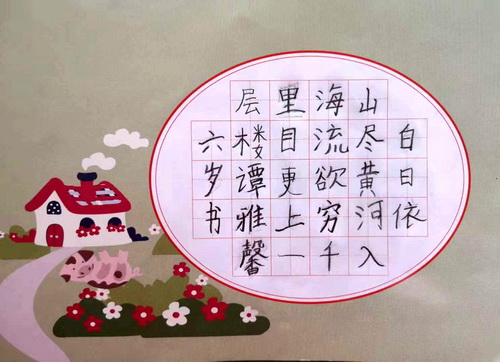 白日依
山尽黄河入
海流欲穷千
里目更上一
层楼谭雅馨
六岁书